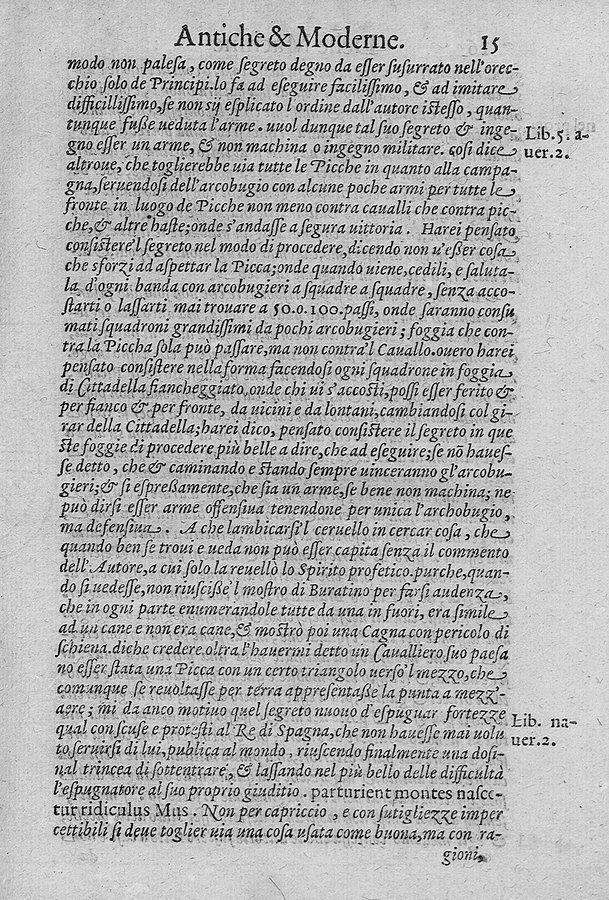 Antiche & Moderne. 15
modo non palesa, come segreto degno da esser susurrato nell'orec-
chio solo de Principi.lo fa ad eseguire facilissimo, & ad imitare
difficillissimo,se non sij esplicato l ordine dall'autore istesso, quan-
tunque fusse veduta l'arme. vuol dunque tal suo segreto & inge-
gno esser un arme, & non machina o ingegno militare. cosi dice
Lib.5. a-
uer.2.
altroue, che toglierebbe via tutte le Picche in quanto alla campa-
gna,seruendosi dell'arcobugio con alcune poche armi per tutte le
fronte in luogo de Picche non meno contra caualli che contra pic-
che,& altre haste;onde s'andasse a segura uittoria. Harei pensato
consistere'l segreto nel modo di procedere,dicendo non u'esser cosa
che sforzi ad aspettar la Picca;onde quando uiene,cedili, e saluta-
la d'ogni banda con arcobugieri a squadre a squadre, senza acco-
starti o lassarti mai trouare a 50.o.100.passi, onde saranno consu
mati squadroni grandissimi da pochi arcobugieri; foggia che con-
tra la Piccha sola può passare,ma non contra'l Cauallo.ouero harei
pensato consistere nella forma facendosi ogni squadrone in foggia
di Cittadella fiancheggiato,onde chi ui s'accosti,possi esser ferito &
per fianco & per fronte, da uicini e da lontani,cambiandosi col gi-
rar della Cittadella;harei dico, pensato consistere il segreto in que
ste foggie di procedere più belle a dire,che ad eseguire;se nō hauef-
se detto, che & caminando e stando sempre uinceranno gl'arcobu-
gieri;& si espressamente,che sia un arme,se bene non machina; ne
può dirsi esser arme offensiua tenendone per unica l'archobugio,
ma defensiua. A che lambicarsi'l ceruello in cercar cosa, che
quando ben se troui e ueda non può esser capita senza il commento
dell'Autore,a cui solo la reuellò lo Spirito profetico.purche,quan-
do si uedesse,non riuscisse'l mostro di Buratino per farsi audenza,
che in ogni parte enumerandole tutte da una in fuori, era simile
ad un cane e non era cane,& mostrò poi una Cagna con pericolo di
schiena.diche credere.oltra l'hauermi detto un Caualliero suo paesa
no esser stata una Picca con un certo triangolo verso'l mezzo,che
comunque se reuoltasse per terra appresentasse la punta a mezz'-
aere; mi da anco motiuo quel segreto nuouo d'espugnar fortezze
Lib. na-
uer.2.
qual con scuse e protesti al Re di Spagna,che non hauesse mai uolu
to seruirsi di lui,publica al mondo, riuscendo finalmente una dosi-
nal trincea di sottentrare, & lassando nel più bello delle difficultà
l'espugnatore al suo proprio giuditio. parturient montes nasce-
tur ridiculus Mus. Non per capriccio, e con sutigliezze imper
cettibili si deue toglier uia una cosa usata come buona,ma con ra-
gioni,